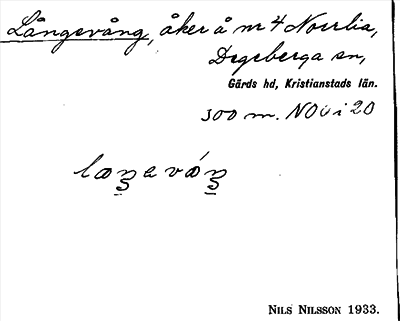 Långavång, åker å nr 4 Norrlia,
Degeberga sn,
Gärds hd, Kristianstads län.
300 m. NO v i 20
NILS NILSSON 1933.